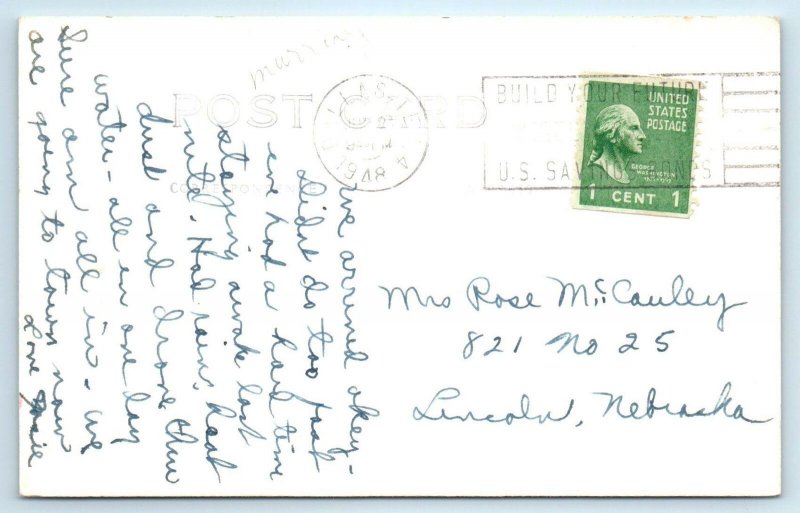 murring
POST CARD
CORRESPONDENCE
DALLAS, TEX.
1948
BUILD YOUR FUTURE
U.S. SAVINGS BONDS
UNITED
STATES
POSTAGE
GEORGE
WASHINGTON
1789-1797
1 CENT 1
We arrived okey-
didnt do too fast
eve had a hard time
staying awake last
nite. Had rain, heat
dust and drove thru
water - all in one day
Sure am all in - we
are going to town now
Love Josie
Mrs Rose McCauley
821 No 25
Lincoln, Nebraska